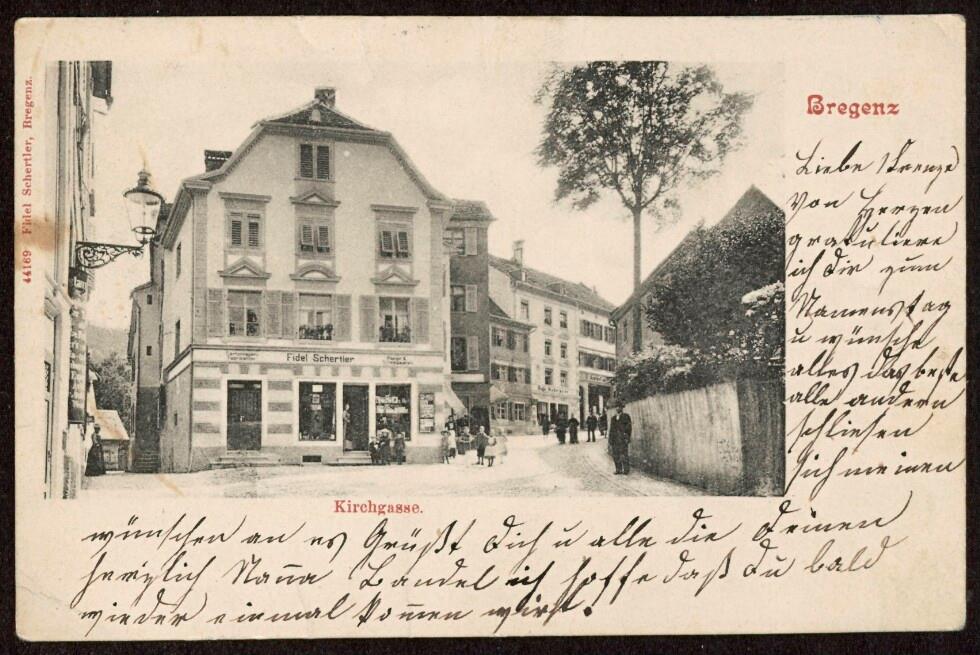 44169 Fidel Schertler, Bregenz.
Fidel Schertler
Bregenz
Kirchgasse.
Liebe Kreuzz
von Herzen
gratuliere
ich Dir zum
Namenstag
u wünsche
alles das beste
alle andern
schließen
sich meinen
wünschen an es Grüßt Dich u alle die Deinen
herzlich Nan̄a Bandel ich hoffe daß Du bald
wieder einmal kom̄en wirst.